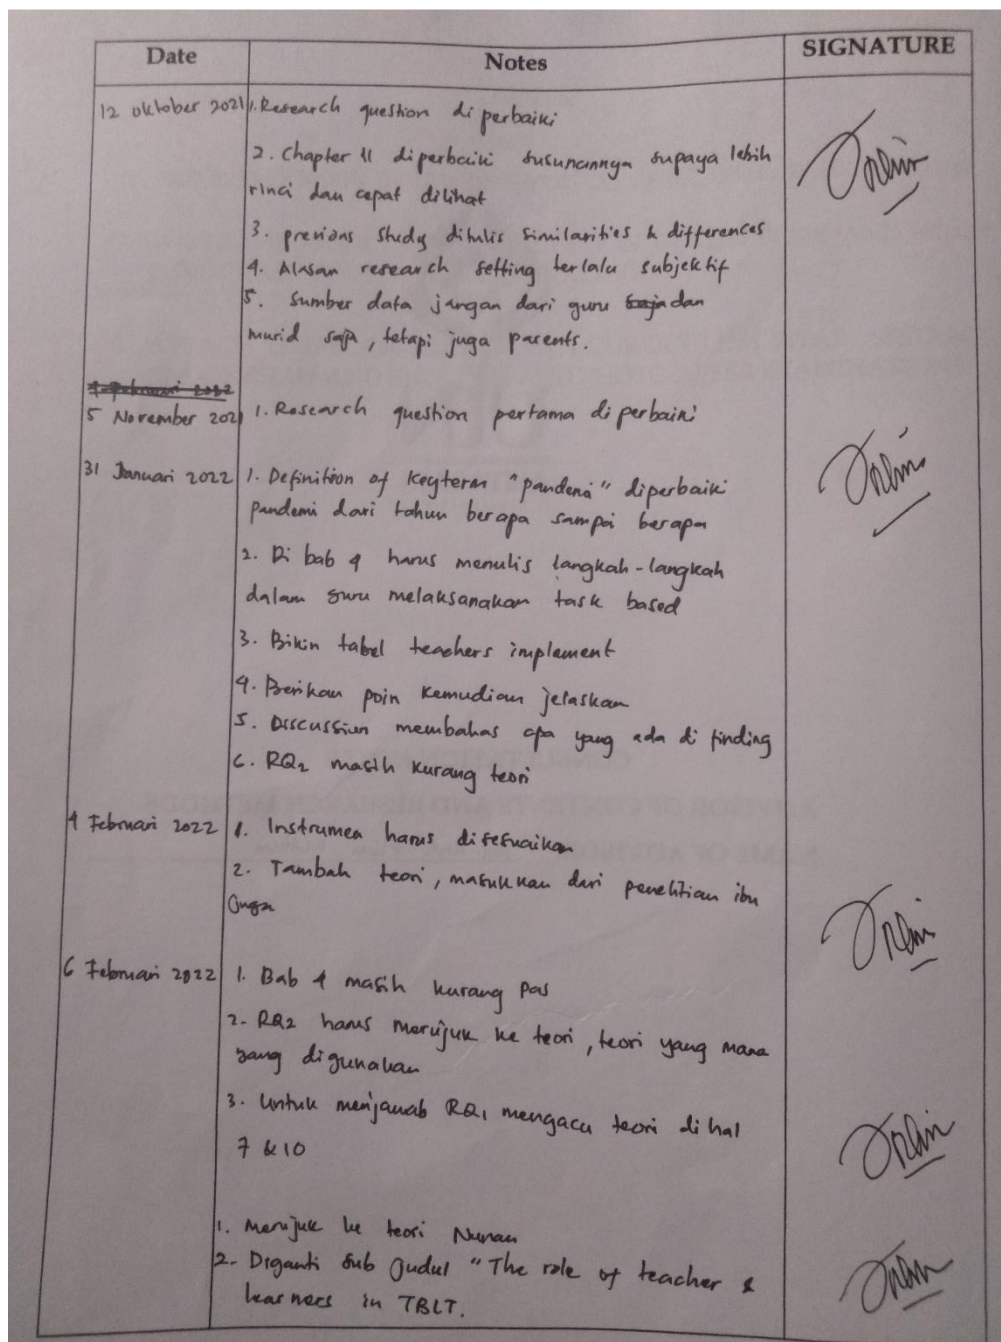 Date Notes SIGNATURE
12 oktober 2021 1. Research question diperbaiki
2. Chapter II diperbaiki susunannya supaya lebih
rinci dan cepat dilihat
3. previous study ditulis similarities & differences
4. Alasan research setting terlalu subjektif
5. Sumber data jangan dari guru saja dan
murid saja, tetapi juga parents.
4 Februari 2022
5 November 2021 1. Research question pertama diperbaiki
31 Januari 2022 1. Definition of keyterm "pandemi" diperbaiki
pandemi dari tahun berapa sampai berapa
2. Di bab 4 harus menulis langkah-langkah
dalam guru melaksanakan task based
3. Bikin tabel teachers implement
4. Berikan poin kemudian jelaskan
5. Discussion membahas apa yang ada di finding
6. RQ2 masih kurang teori
4 Februari 2022 1. Instrumen harus disesuaikan
2. Tambah teori, masukkan dari penelitian ibu
juga
6 Februari 2022 1. Bab 4 masih kurang pas
2. RQ2 harus merujuk ke teori, teori yang mana
yang digunakan
3. Untuk menjawab RQ1 mengacu teori di hal
7 & 10
1. Merujuk ke teori Nunan
2. Diganti sub judul "The role of teacher &
learners in TBLT.